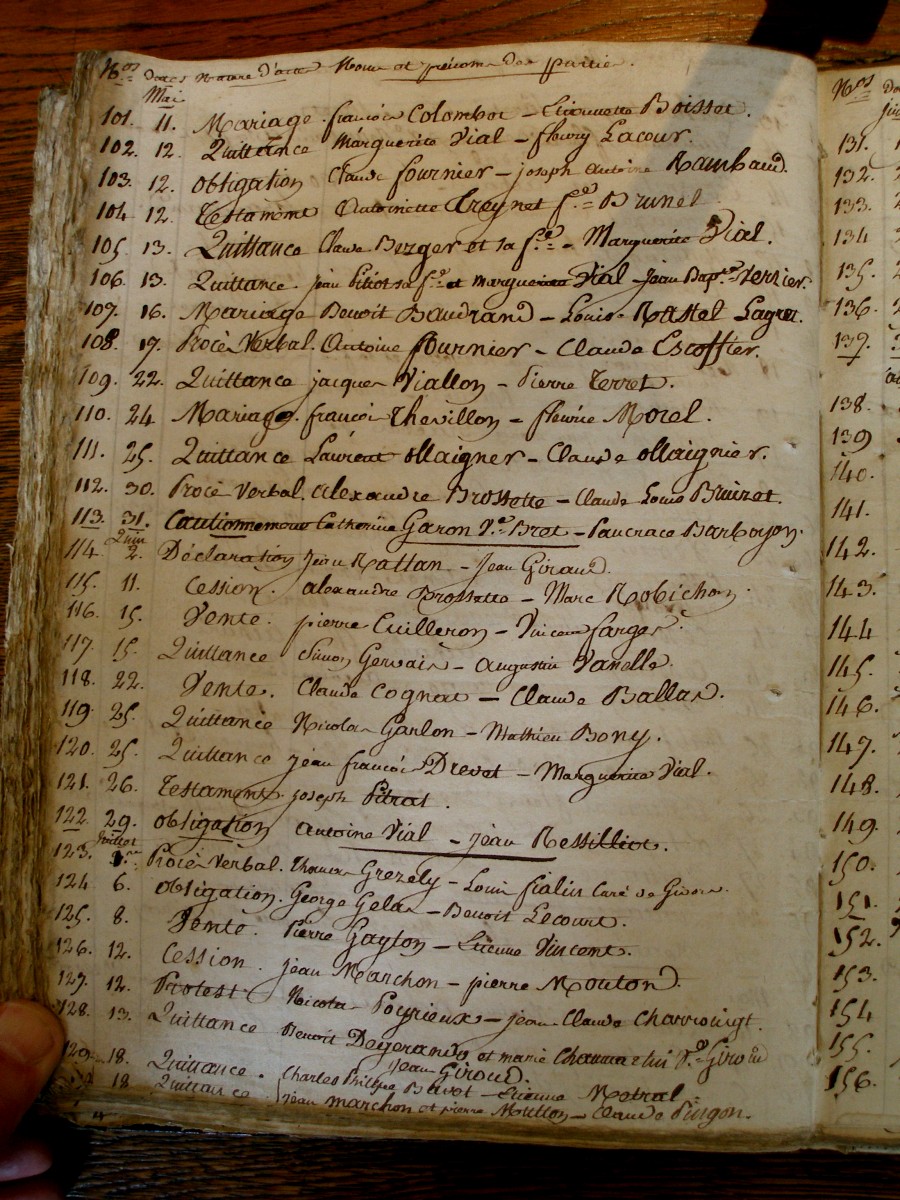 Nos dates Nature d'acte Noms et prénoms des parties.
Mai
101. 11. Mariage. françois Colombet - Etiennette Boisset.
102. 12. Quittance Marguerite Vial - fleury Lacour.
103. 12. obligation Claude fournier - joseph Antoine Rambaud.
104 12. Testament Antoinette Treynet fe. Brunel
105 13. Quittance Claude Berger et sa fe. - Marguerite Vial.
106. 13. Quittance. jean Pitiot sa fe. et marguerite Vial - jean Bapte. Verzier.
107. 16. Mariage Benoit Baudrand - Louise Rastel Lagret.
108. 17. Procès Verbal. Antoine fournier - Claude Escoffier.
109. 22. Quittance jacques Viallon - Pierre Terret.
110. 24 Mariage. françois Thevillon - fleurie Morel.
111. 25. Quittance Laurent Maigner - Claude Maignier.
112. 30. Procè Verbal. alexandre Brossette - Claude Louis Bruizet.
113. 31. Cautionnement Catherine Garon Ve. Brot - Pancrace Barboyon.
Juin
114 2. Déclaration Jean Rattan - Jean Giraud.
115. 11. Cession. alexandre Brossette - Marc Robichon.
116. 15. Vente. pierre Cuilleron - Vincent farges.
117. 15. Quittance Simon Gervais - augustin Vanelle.
118. 22. Vente. Claude Cognat - Claude Ballas.
119. 25. Quittance Nicolas Ganlon - Mathieu Bony.
120. 25. Quittance jean françois Drevet - Marguerite Vial.
121. 26. Testament. joseph Pitrat.
122. 29. obligation antoine Vial - jean Ressilliot.
Juillet
123. 1er Procè Verbal. Thomas Grezely - Louis fialin Curé de Givors.
124 6. obligation. George Gelas - Benoit Lecourt.
125. 8. Vente. Pierre Gayton - Etienne Vincent.
126. 12. Cession. jean Marchon - pierre Mouton.
127. 12. Protest Nicolas Poyrieux - jean Claude Charvoingt.
128. 13. Quittance Benoit Degerando et marie Ve. Giroud
jean Giroud.
129. 18. Quittance. Charles Philipe Bavot - Etienne Motral.
18 Quittance jean marchon et pierre Moutton - Claude Pingon.
Nos
131.
132.
133.
134
135.
136.
137.
138.
139
140.
141.
142.
143.
144
145.
146.
147.
148.
149.
150.
151.
152.
153.
154
155.
156.